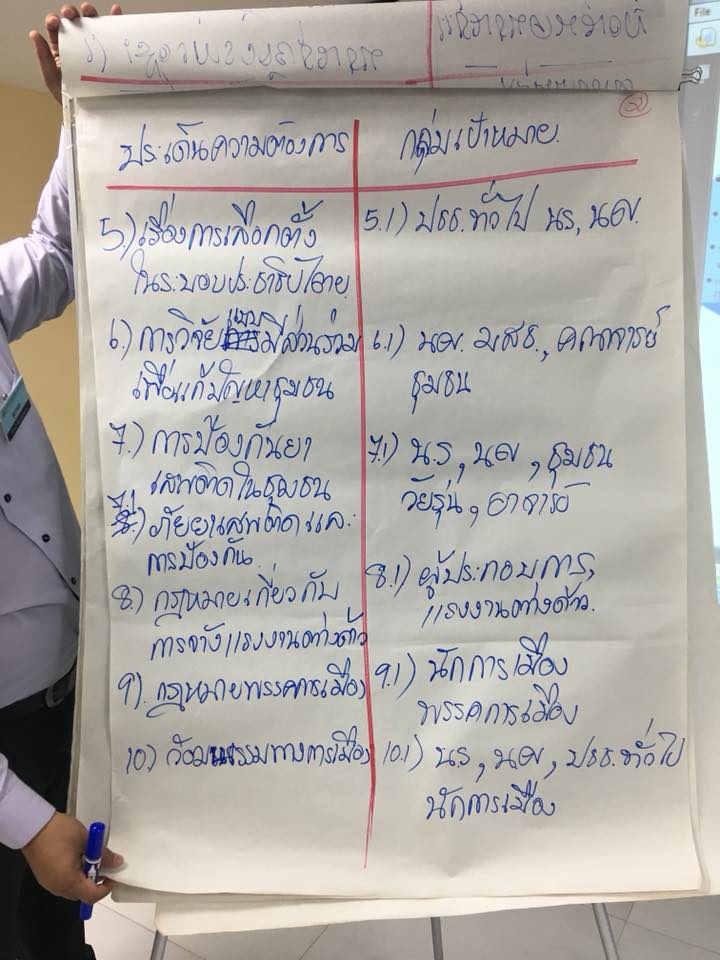 ประเด็นความต้องการ
กลุ่มเป้าหมาย
②
5.) เรื่องการเลือกตั้ง
ในระบอบประชาธิปไตย
5.1) ปชช.ทั่วไป นร, นศ.
6.) การวิจัยแบบมีส่วนร่วม
เพื่อแก้ปัญหาชุมชน
6.1) นศ. มสธ., คณาจารย์
ชุมชน
7.) การป้องกันยา
เสพติดในชุมชน
7.1) น.ร, น.ศ, ชุมชน
วัยรุ่น, อาจารย์
7.1) ภัยยาเสพติดและ
การป้องกัน
8.) กฎหมายเกี่ยวกับ
การจ้างแรงงานต่างด้าว
8.1) ผู้ประกอบการ,
แรงงานต่างด้าว.
9). กฎหมายพรรคการเมือง
9.1) นักการเมือง
พรรคการเมือง
10.) วัฒนธรรมทางการเมือง
10.1) นร, นศ, ปชช.ทั่วไป
นักการเมือง
File